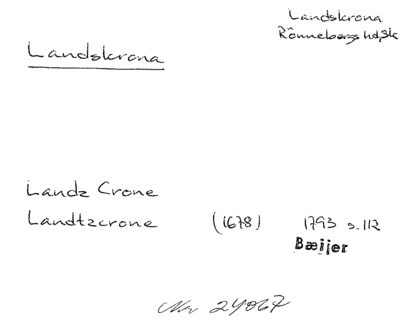 Landskrona
Rönnebergs hd, Sk
Landskrona
Landz Crone
Landtzcrone (1678) 1793 s. 112
Bæijer
24067